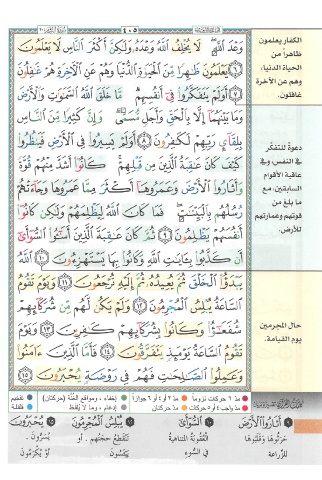 ٤٠٥
وَعْدَ ٱللَّهِ لَا يُخْلِفُ ٱللَّهُ وَعْدَهُۥ وَلَٰكِنَّ أَكْثَرَ ٱلنَّاسِ لَا يَعْلَمُونَ
٦ يَعْلَمُونَ ظَٰهِرًا مِّنَ ٱلْحَيَوٰةِ ٱلدُّنْيَا وَهُمْ عَنِ ٱلْأَخِرَةِ هُمْ غَٰفِلُونَ
٧ أَوَلَمْ يَتَفَكَّرُوا۟ فِىٓ أَنفُسِهِم مَّا خَلَقَ ٱللَّهُ ٱلسَّمَٰوَٰتِ وَٱلْأَرْضَ
وَمَا بَيْنَهُمَآ إِلَّا بِٱلْحَقِّ وَأَجَلٍ مُّسَمًّى وَإِنَّ كَثِيرًا مِّنَ ٱلنَّاسِ
بِلِقَآئِ رَبِّهِمْ لَكَٰفِرُونَ ٨ أَوَلَمْ يَسِيرُوا۟ فِى ٱلْأَرْضِ فَيَنظُرُوا۟
كَيْفَ كَانَ عَٰقِبَةُ ٱلَّذِينَ مِن قَبْلِهِمْ كَانُوٓا۟ أَشَدَّ مِنْهُمْ قُوَّةً
وَأَثَارُوا۟ ٱلْأَرْضَ وَعَمَرُوهَآ أَكْثَرَ مِمَّا عَمَرُوهَا وَجَآءَتْهُمْ
رُسُلُهُم بِٱلْبَيِّنَٰتِ فَمَا كَانَ ٱللَّهُ لِيَظْلِمَهُمْ وَلَٰكِن كَانُوٓا۟
أَنفُسَهُمْ يَظْلِمُونَ ٩ ثُمَّ كَانَ عَٰقِبَةَ ٱلَّذِينَ أَسَٰٓـُٔوا۟ ٱلسُّوٓأَىٰٓ
أَن كَذَّبُوا۟ بِـَٔايَٰتِ ٱللَّهِ وَكَانُوا۟ بِهَا يَسْتَهْزِءُونَ ١٠ ٱللَّهُ
يَبْدَؤُا۟ ٱلْخَلْقَ ثُمَّ يُعِيدُهُۥ ثُمَّ إِلَيْهِ تُرْجَعُونَ ١١ وَيَوْمَ تَقُومُ
ٱلسَّاعَةُ يُبْلِسُ ٱلْمُجْرِمُونَ ١٢ وَلَمْ يَكُن لَّهُم مِّن شُرَكَآئِهِمْ
شُفَعَٰٓؤُا۟ وَكَانُوا۟ بِشُرَكَآئِهِمْ كَٰفِرِينَ ١٣ وَيَوْمَ
تَقُومُ ٱلسَّاعَةُ يَوْمَئِذٍ يَتَفَرَّقُونَ ١٤ فَأَمَّا ٱلَّذِينَ ءَامَنُوا۟
وَعَمِلُوا۟ ٱلصَّٰلِحَٰتِ فَهُمْ فِى رَوْضَةٍ يُحْبَرُونَ ١٥
الكفار يعلمون
ظاهراً من
الحياة الدنيا،
وهم عن الآخرة
غافلون.
دعوةٌ للتفكّر
في النفس، وفي
عاقبة الأقوام
السابقين، مع
ما بلغ من
قوتهم وعمارتهم
للأرض.
حال المجرمين
يوم القيامة.
مدّ ٦ حركات لزوماً مدّ ٢ أو ٤ أو ٦ جوازاً إخفاء، ومواقع الغُنَّة (حركتان) تفخيم
مدّ واجب ٤ أو ٥ حركات مدّ حركتان إدغام، وما لا يُلفَظ قلقلة
٩ أَثَارُوا۟ ٱلْأَرْضَ
حَرَثُوهَا وَقَلَبُوهَا
للزراعة
١٠ ٱلسُّوٓأَىٰ
العُقُوبَة المتناهية
في السُّوء
١٢ يُبْلِسُ ٱلْمُجْرِمُونَ
تَنْقَطِعُ حُجَّتُهم، أو
يَيْأَسُون
١٥ يُحْبَرُونَ
يُسَرُّون،
أو يُكْرَمُون